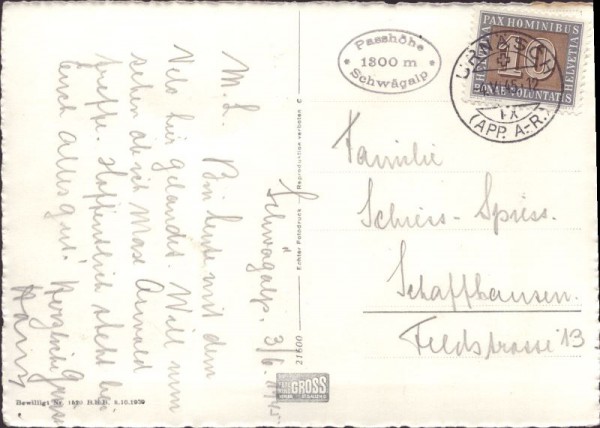 Schwägalp. 3/6. 1945
M. L. Bin heute mit dem
Velo hier gelandet. Will nun
sehen ob ich Max Anwald
treffe. Hoffentlich steht bei
Euch alles gut. Herzliche Grüsse
Hans
Passhöhe
1300 m
Schwägalp
PAX HOMINIBUS
HELVETIA
HELVETIA
10
BONAE VOLUNTATIS
URNÄSCH
(APP. A.-R.)
Familie
Schiess - Spiess.
Schaffhausen.
Feldstrasse 13
Echter Fotodruck — Reproduction verboten
21600
GROSS
Bewilligt Nr. 1870 B.R.B. 3.10.1939